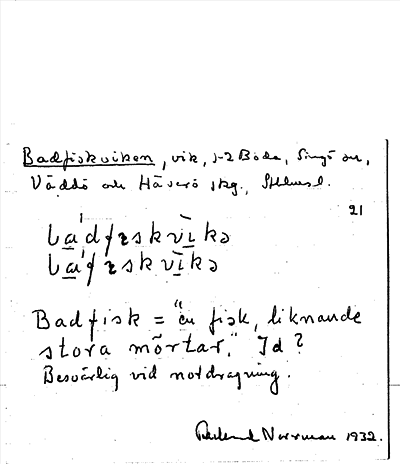 Badfiskviken, vik, 1-2 Boda, Singö sn,
Väddö och Häverö skg., Sthlms l.
21
bádfɪskvìkə
báfɪskvìkə
Badfisk = "en fisk, liknande
stora mörtar." Id?
Besvärlig vid notdragning.
Norrman 1932.